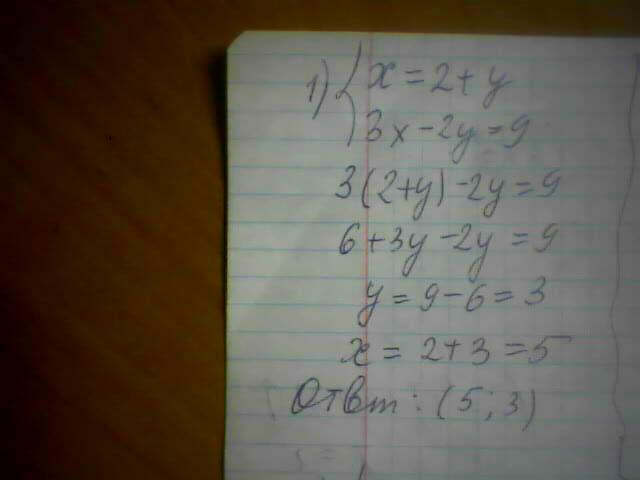 1) { x = 2 + y
3x - 2y = 9
3(2+y) - 2y = 9
6 + 3y - 2y = 9
y = 9 - 6 = 3
x = 2 + 3 = 5
Ответ: (5; 3)